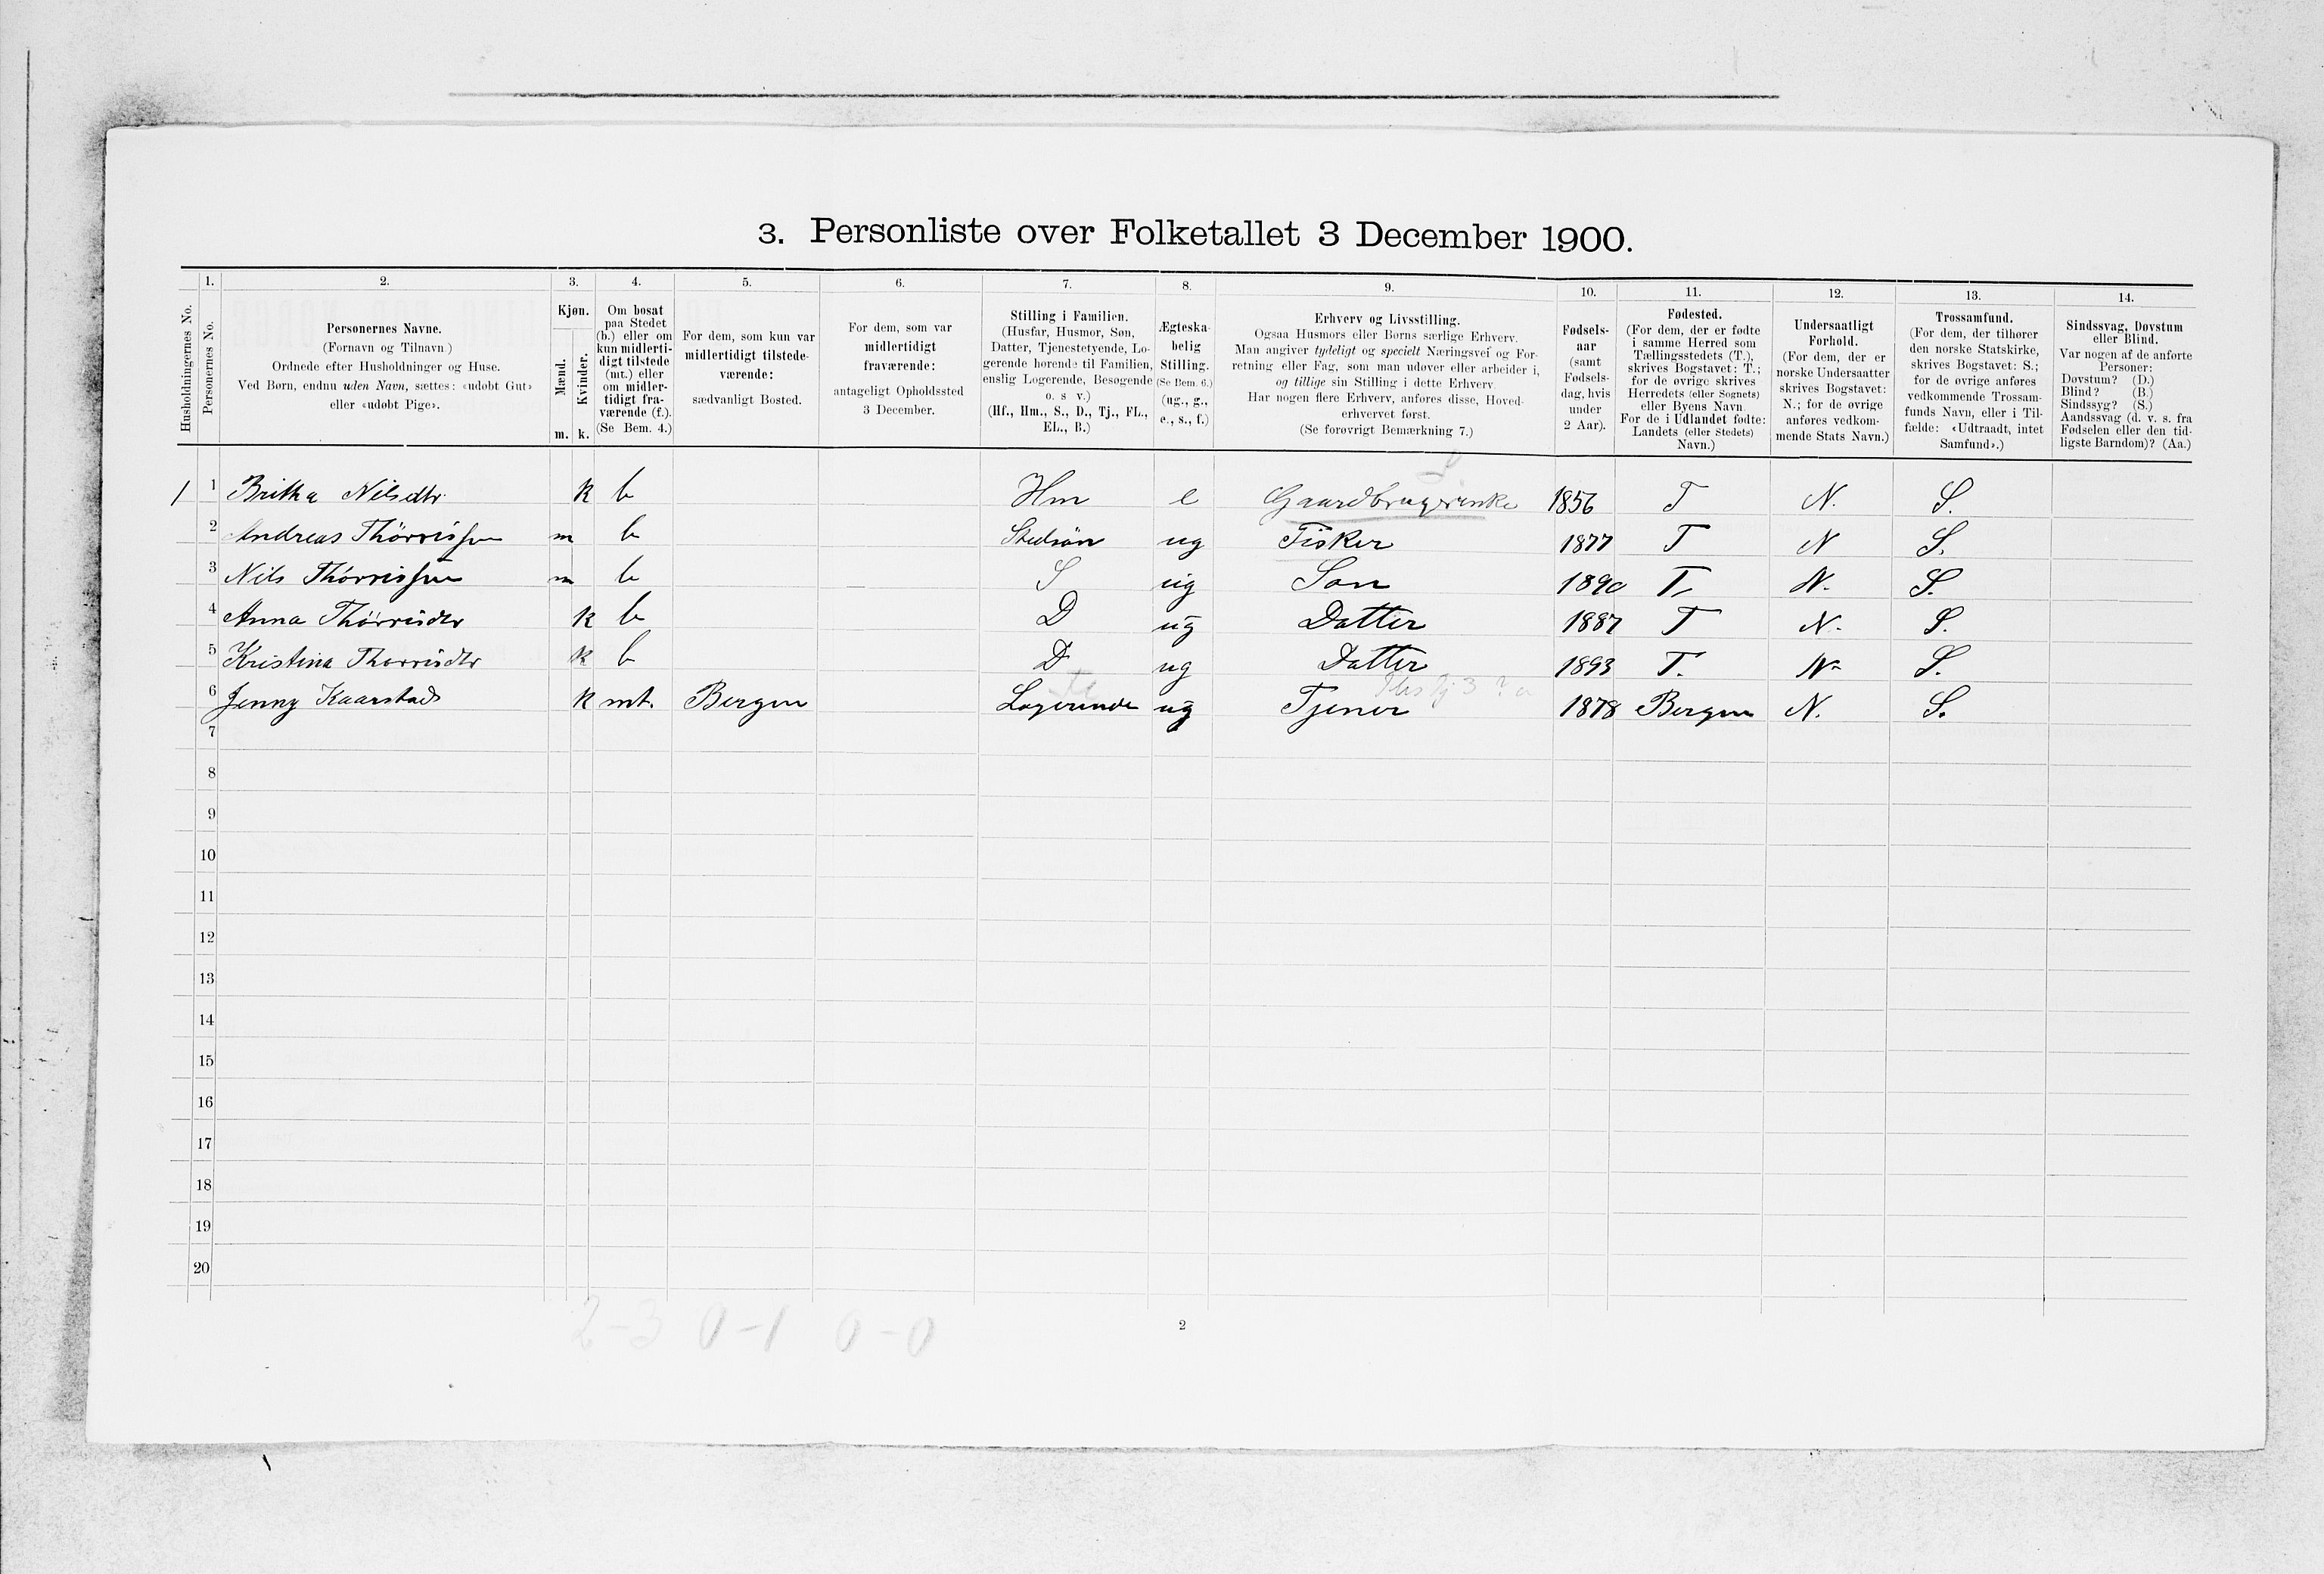 3. Personliste over Folketallet 3 December 1900.
Husholdningernes No.
1.
Personernes No.
2.
Personernes Navne.
(Fornavn og Tilnavn.)
Ordnede efter Husholdninger og Huse.
Ved Børn, endnu uden Navn, sættes: «udøbt Gut»
eller «udøbt Pige».
3.
Kjøn.
Mænd.
Kvinder.
m. k.
4.
Om bosat
paa Stedet
(b.) eller om
kun midlerti-
digt tilstede
(mt.) eller
om midler-
tidigt fra-
værende (f.).
(Se Bem. 4.)
5.
For dem, som kun var
midlertidigt tilstede-
værende:
sædvanligt Bosted.
6.
For dem, som var
midlertidigt
fraværende:
antageligt Opholdssted
3 December.
7.
Stilling i Familien.
(Husfar, Husmor, Søn,
Datter, Tjenestetyende, Lo-
gerende hørende til Familien,
enslig Logerende, Besøgende
o. s. v.)
(Hf., Hm., S., D., Tj., FL.,
EL., B.)
8.
Ægteska-
belig
Stilling.
(Se Bem. 6.)
(ug., g.,
e., s., f.)
9.
Erhverv og Livsstilling.
Ogsaa Husmors eller Børns særlige Erhverv.
Man angiver tydeligt og specielt Næringsvei og For-
retning eller Fag, som man udøver eller arbeider i,
og tillige sin Stilling i dette Erhverv.
Har nogen flere Erhverv, anføres disse, Hoved-
erhvervet først.
(Se forøvrigt Bemærkning 7.)
10.
Fødsels-
aar
(samt
Fødsels-
dag, hvis
under
2 Aar).
11.
Fødested.
(For dem, der er fødte
i samme Herred som
Tællingsstedets (T.),
skrives Bogstavet: T.;
for de øvrige skrives
Herredets (eller Sognets)
eller Byens Navn.
For de i Udlandet fødte:
Landets (eller Stedets)
Navn.)
12.
Undersaatligt
Forhold.
(For dem, der er
norske Undersaatter
skrives Bogstavet:
N.; for de øvrige
anføres vedkom-
mende Stats Navn.)
13.
Trossamfund.
(For dem, der tilhører
den norske Statskirke,
skrives Bogstavet: S.;
for de øvrige anføres
vedkommende Trossam-
funds Navn, eller i Til-
fælde: «Udtraadt, intet
Samfund».)
14.
Sindssvag, Døvstum
eller Blind.
Var nogen af de anførte
Personer:
Døvstum? (D.)
Blind? (B.)
Sindssyg? (S.)
Aandssvag (d. v. s. fra
Fødselen eller den tid-
ligste Barndom)? (Aa.)
1 1 Britha Nilsdtr k b Hm e Gaardbrugerinke 1856 T N. S.
2 Andreas Thørrissen m b Stedsøn ug Fisker 1877 T N S.
3 Nils Thørrissen m b S ug Søn 1890 T. N. S.
4 Anna Thørrisdtr k b D ug Datter 1887 T N. S.
5 Kristina Thorrisdtr k b D ug Datter 1893 T. N. S.
6 Jenny Kaarstad k mt. Bergen Logerende ug Tjener 1878 Bergen N. S.
7
8
9
10
11
12
13
14
15
16
17
18
19
20
2-3 0-1 0-0
2